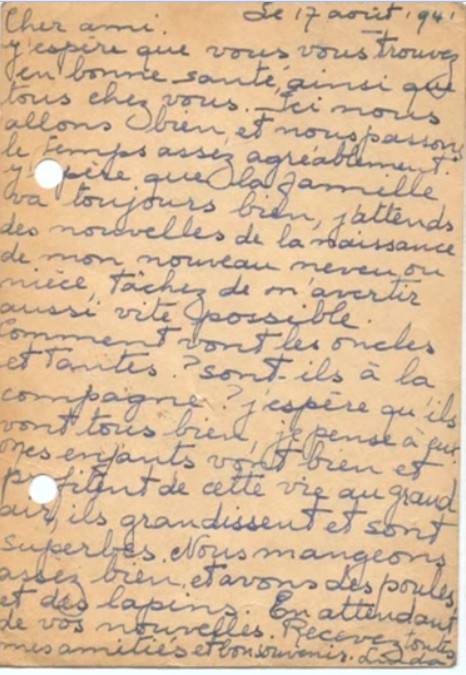 Le 17 août 1941
Cher ami.
J'espère que vous vous trouvez
en bonne santé, ainsi que
tous chez vous. Ici nous
allons bien, et nous passons
le temps assez agréablement.
J' père que la famille
va toujours bien, j'attends
des nouvelles de la naissance
de mon nouveau neveu ou
nièce, tâchez de m'avertir
aussi vite possible.
Comment vont les oncles
et tantes? sont-ils à la
compagne? j'espère qu'ils
vont tous bien, je pense à eux
mes enfants vont bien et
pr fitent de cette vie au grand
air, ils grandissent et sont
superbes. Nous mangeons
assez bien, et avons des poules
et des lapins. En attendant
de vos nouvelles. Recevez toutes
mes amitiés et bon souvenir.